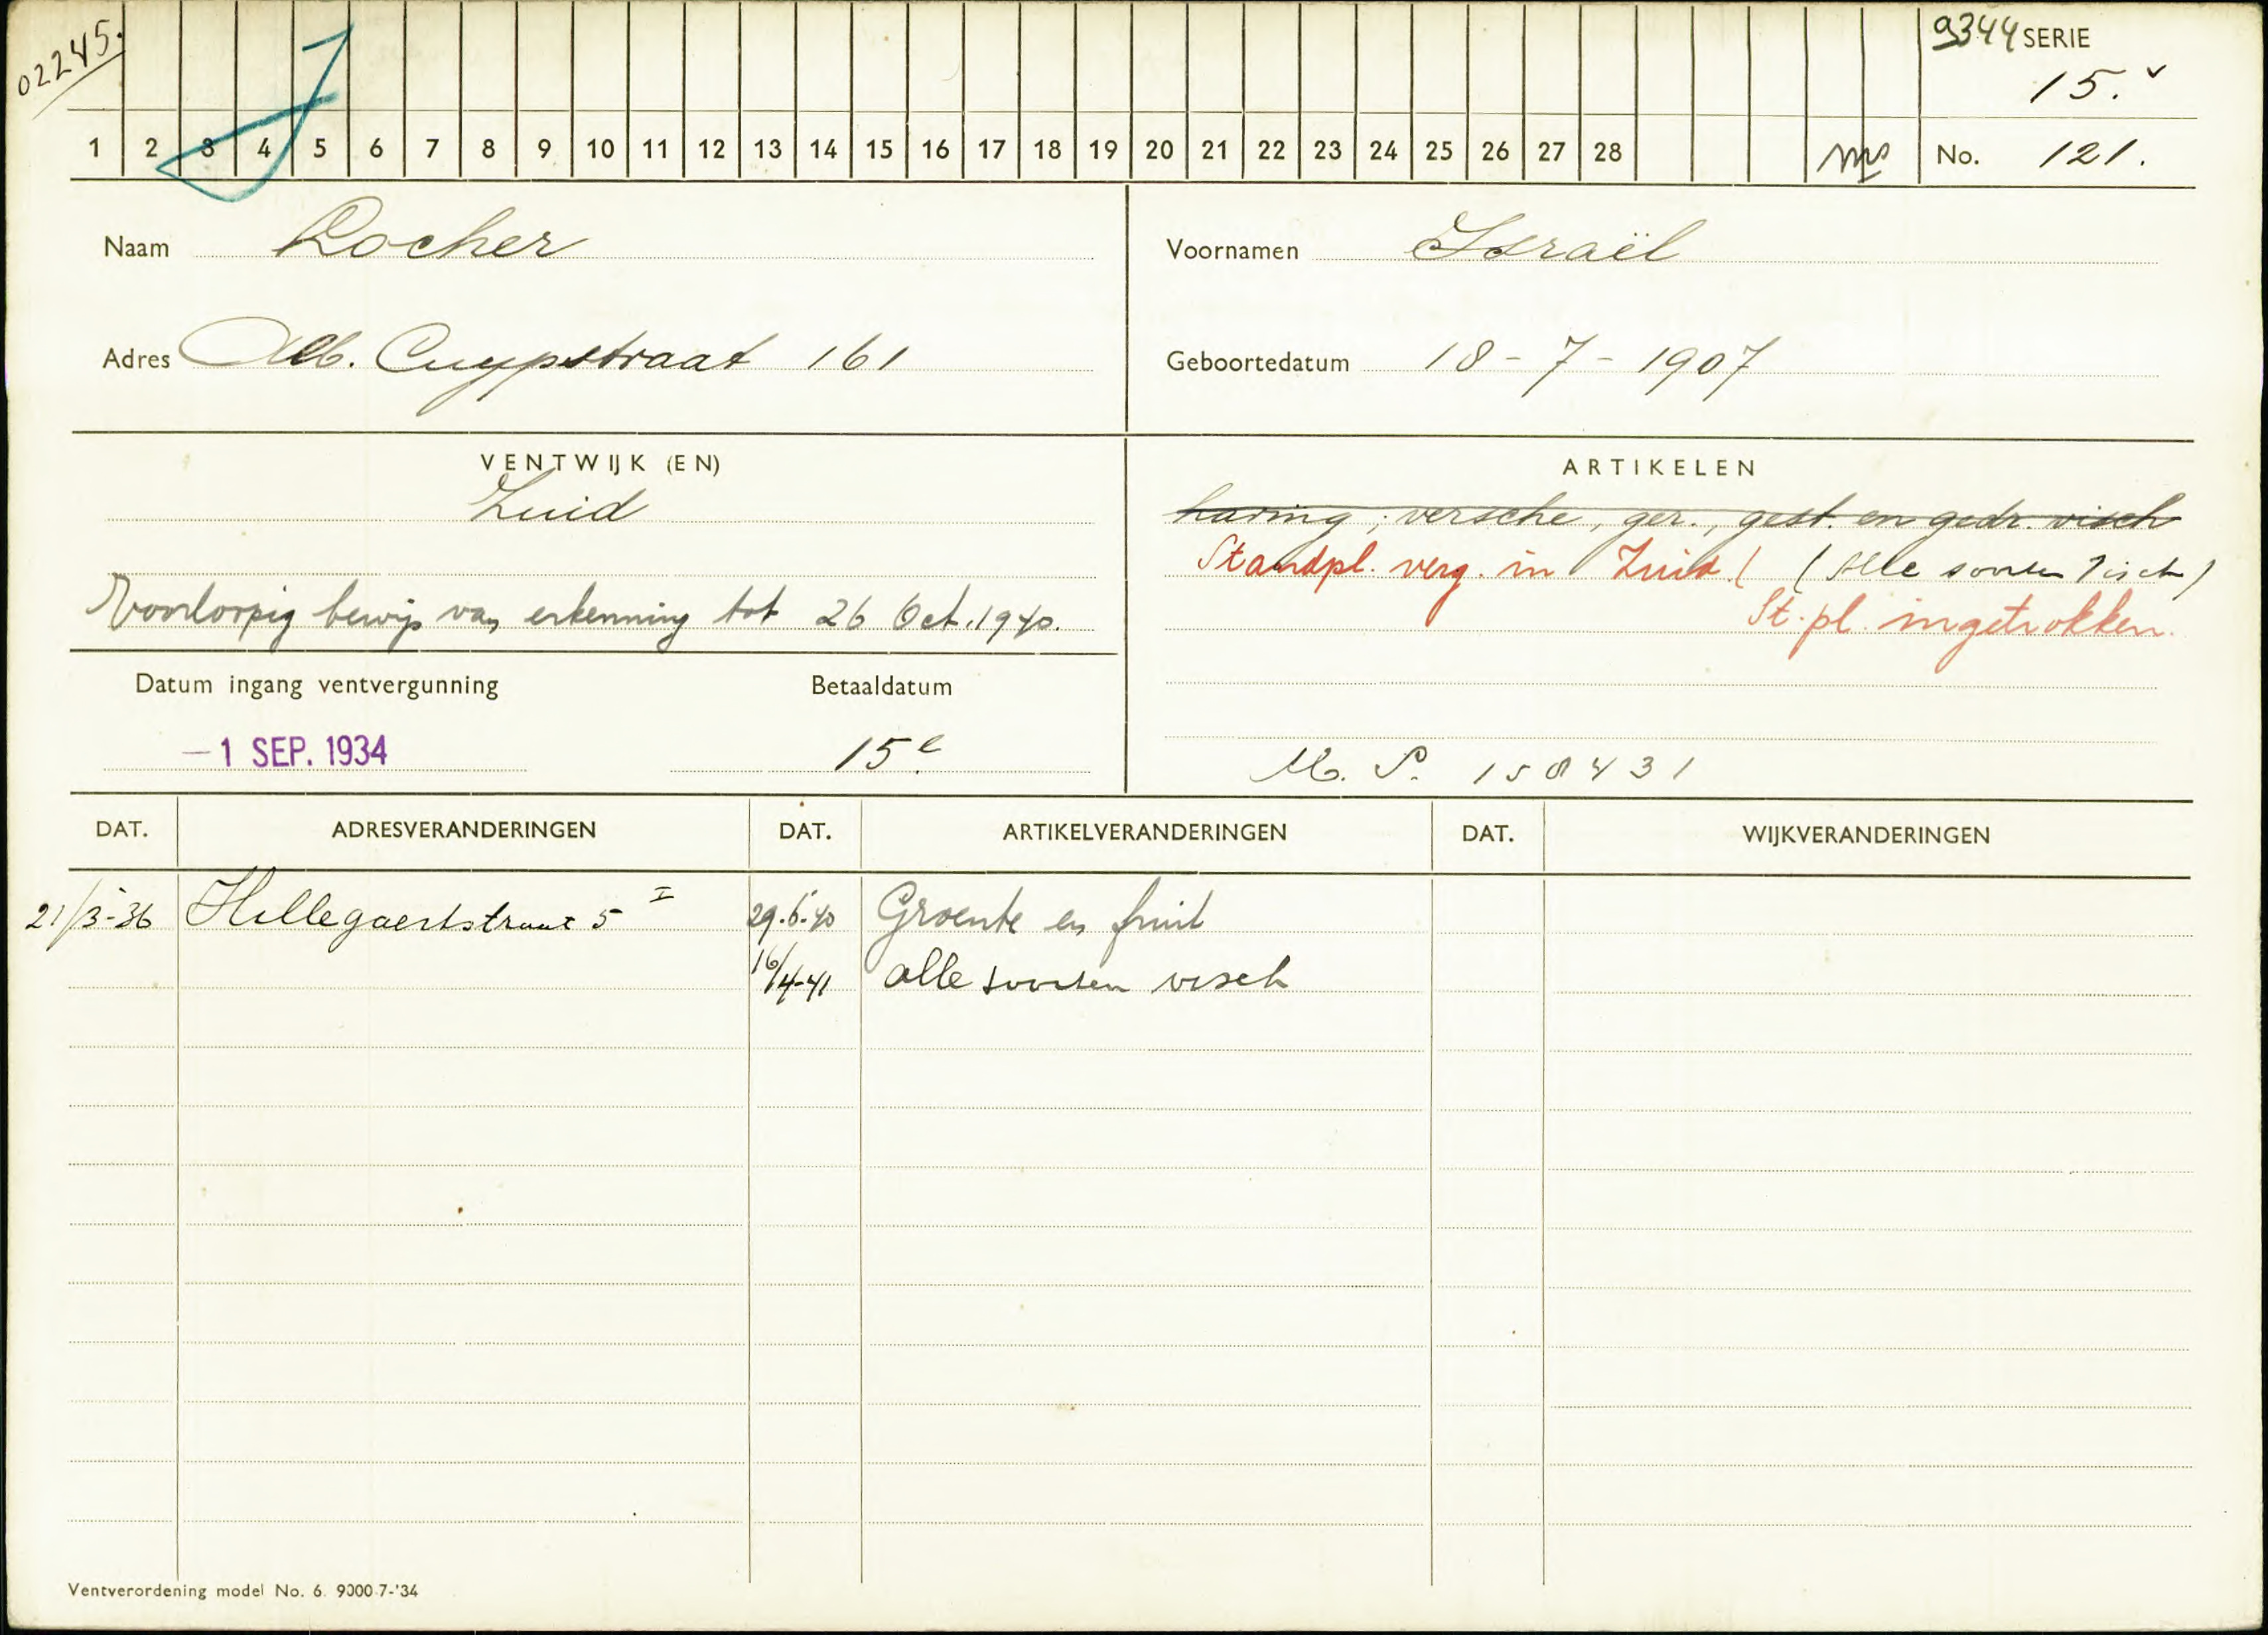 02245.
9344 SERIE
15.
1 2 3 4 5 6 7 8 9 10 11 12 13 14 15 16 17 18 19 20 21 22 23 24 25 26 27 28
No. 121.
Naam Locher
Voornamen Israël
Adres Alb. Cuypstraat 161
Geboortedatum 18-7-1907
VENTWIJK (EN)
Zuid
Voorloopig bewijs van erkenning tot 26 Oct. 1940.
ARTIKELEN
haring, versche, ger., gest. en gedr. visch
Standpl. verg. in Zuid! (Alle soorten visch)
St. pl. ingetrokken.
Datum ingang ventvergunning Betaaldatum
-1 SEP. 1934 15e
M. P. 158431
DAT. ADRESVERANDERINGEN DAT. ARTIKELVERANDERINGEN DAT. WIJKVERANDERINGEN
21/3-36 Hillegaertstraat 5 I 29.6.40 Groente en fruit
16/4-41 alle soorten visch
Ventverordening model No. 6. 9000-7-'34